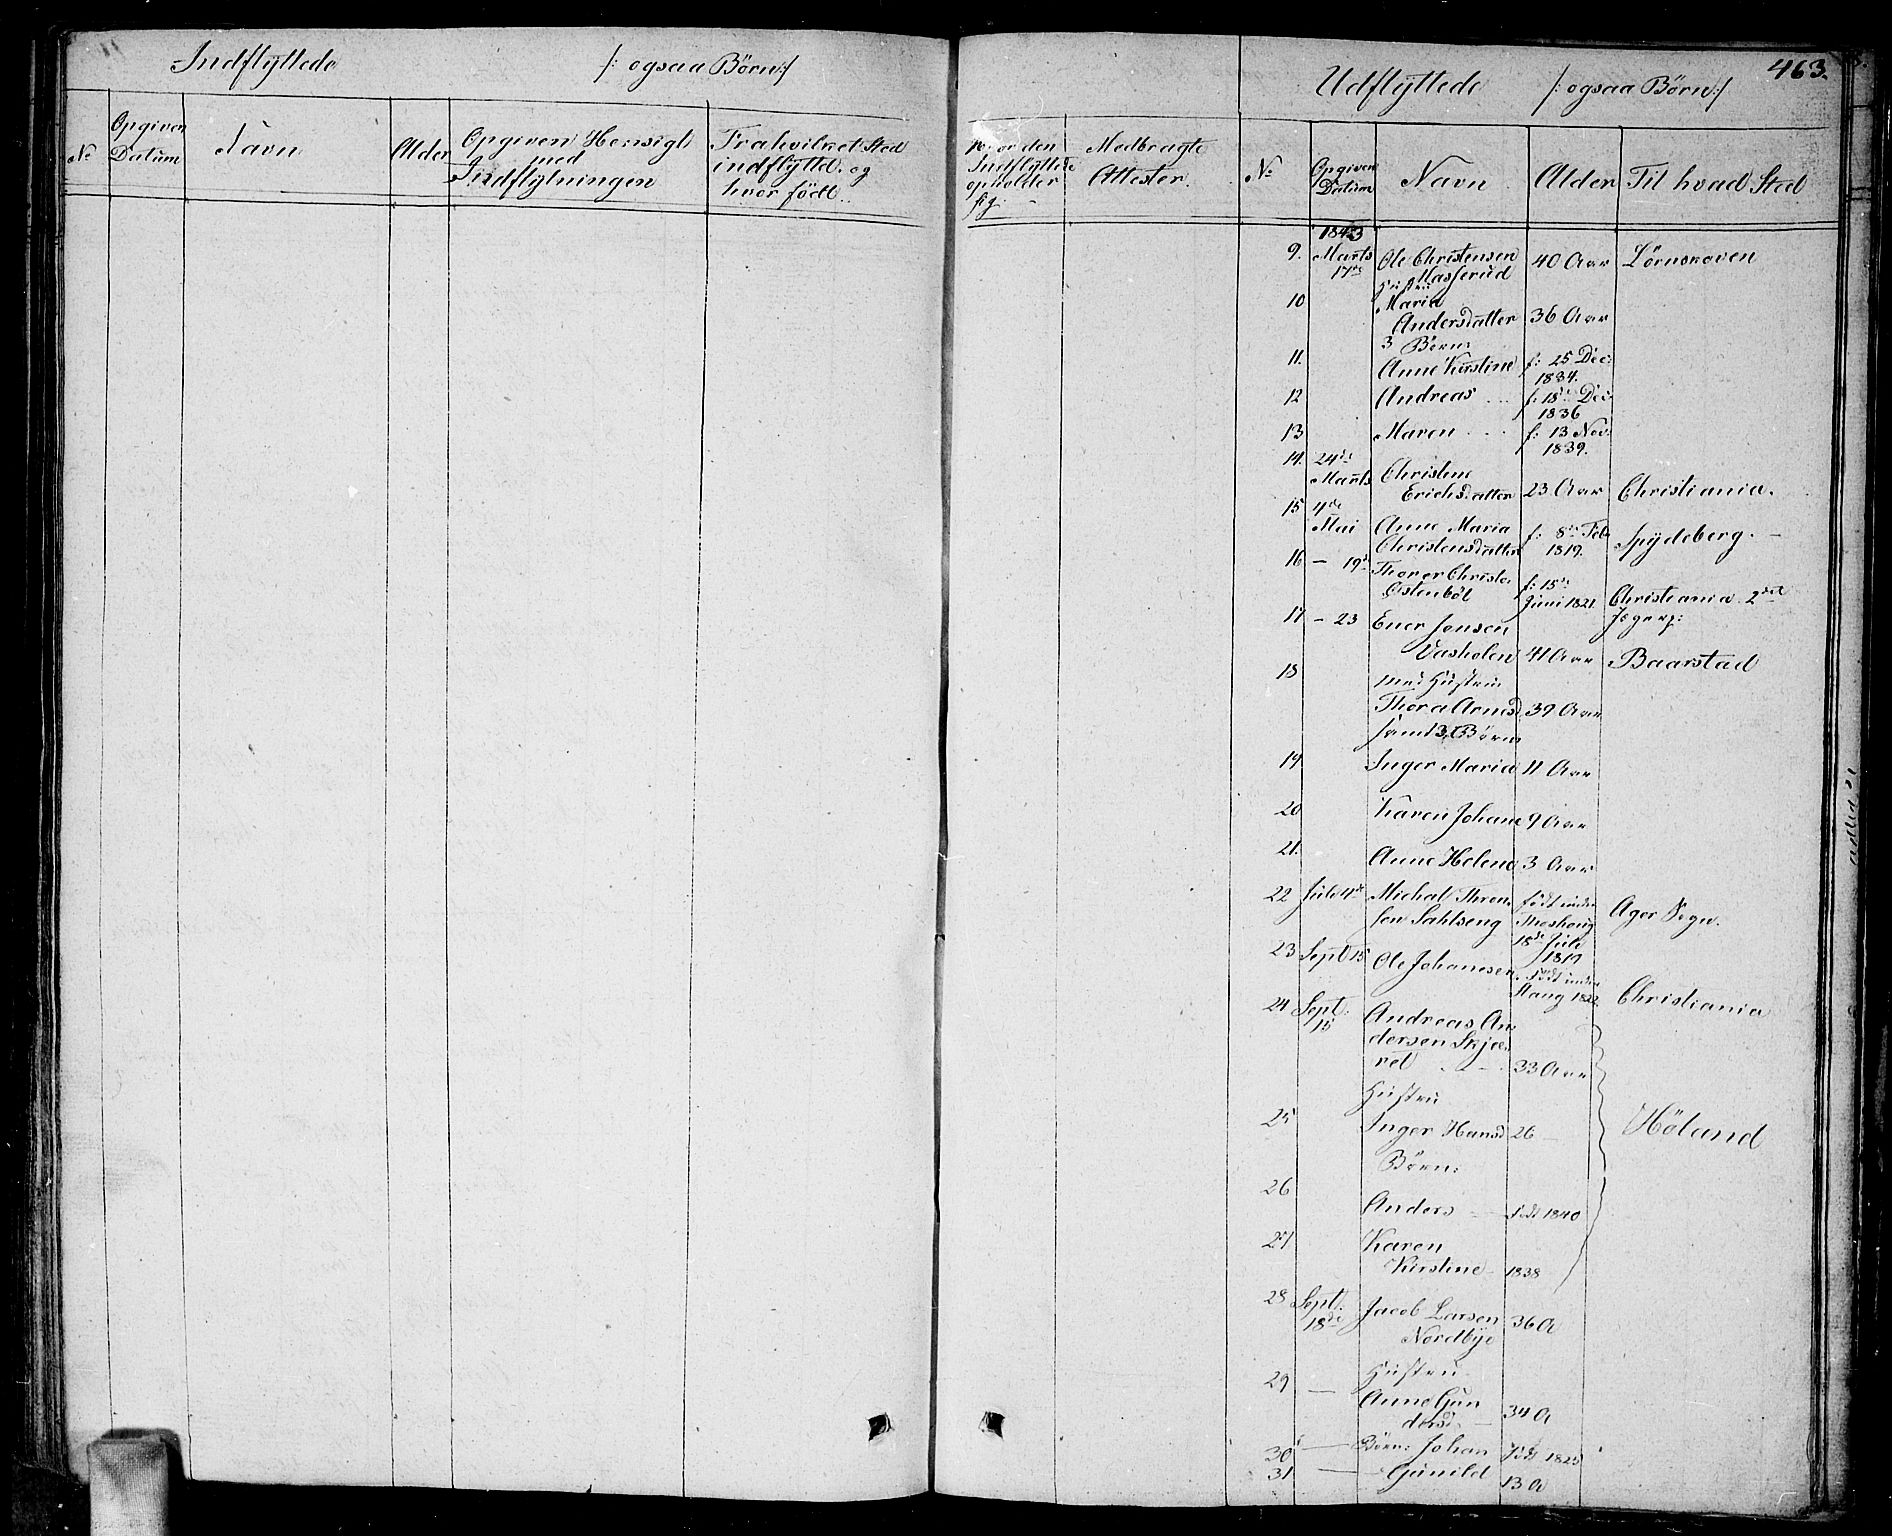 Indflyttede /: ogsaa Børn:/
No
Opgiven Datum
Navn
Alder
Opgiven Hensigt med Indflytningen
Fra hvilket Sted indflytted. og hvor født.
Hvor den Indflyttede opholder sig.
Medbragte Attester.
463.
Udflyttede /: ogsaa Børn:/
No
Opgiven Datum
Navn
Alder
Til hvad Sted
1843
9. Marts 17de Ole Christensen Masserud 40 Aar Lörnskoven
Hustru
10 Maria Andersdatter 36 Aar
3 Børn:
11. Anne Kirstine f: 25 Dec: 1834.
12 Andreas f: 18de Dec: 1836
13 Maren f: 13 Nov: 1839.
14. 24de Marts Christine Erichsdatter 23 Aar Christiania.
15 4de Mai Anne Maria Christensdatter f: 8de Feb 1819. Spydeberg.
16 - 19de Thorer Christ. Østenböl f: 15de Juni 1821. Christiania 2det Jægerk:
17 - 23 Ener Jensen Vasholen 41 Aar Baarstad
18 med Hustru
Thora Arnesd 39 Aar
samt 3 Børn
19 Inger Maria 11 Aar
20 Karen Johane 9 Aar
21. Anne Helene 3 Aar
22 Juli 4de Michal Thron sen Sahlseng født under 18de Juli 1819 Ager Sogn.
23 Sept 15 Ole Johanesen født under 1822 Christiania
24 Sept. 15 Andreas An dersen Skjæ ret 33 Aar
Hustru
25 Inger Hansd 26 - Höland
Børn:
26 Anders født 1840
27 Karen Kirstine 1838
28 Sept. 18de Jacob Larsen Nordbye 36 A
Hustru
29 - Anne Gun dersd. 34 A
30 - Børn: Johan født 1825
31 - Gunild 13 A